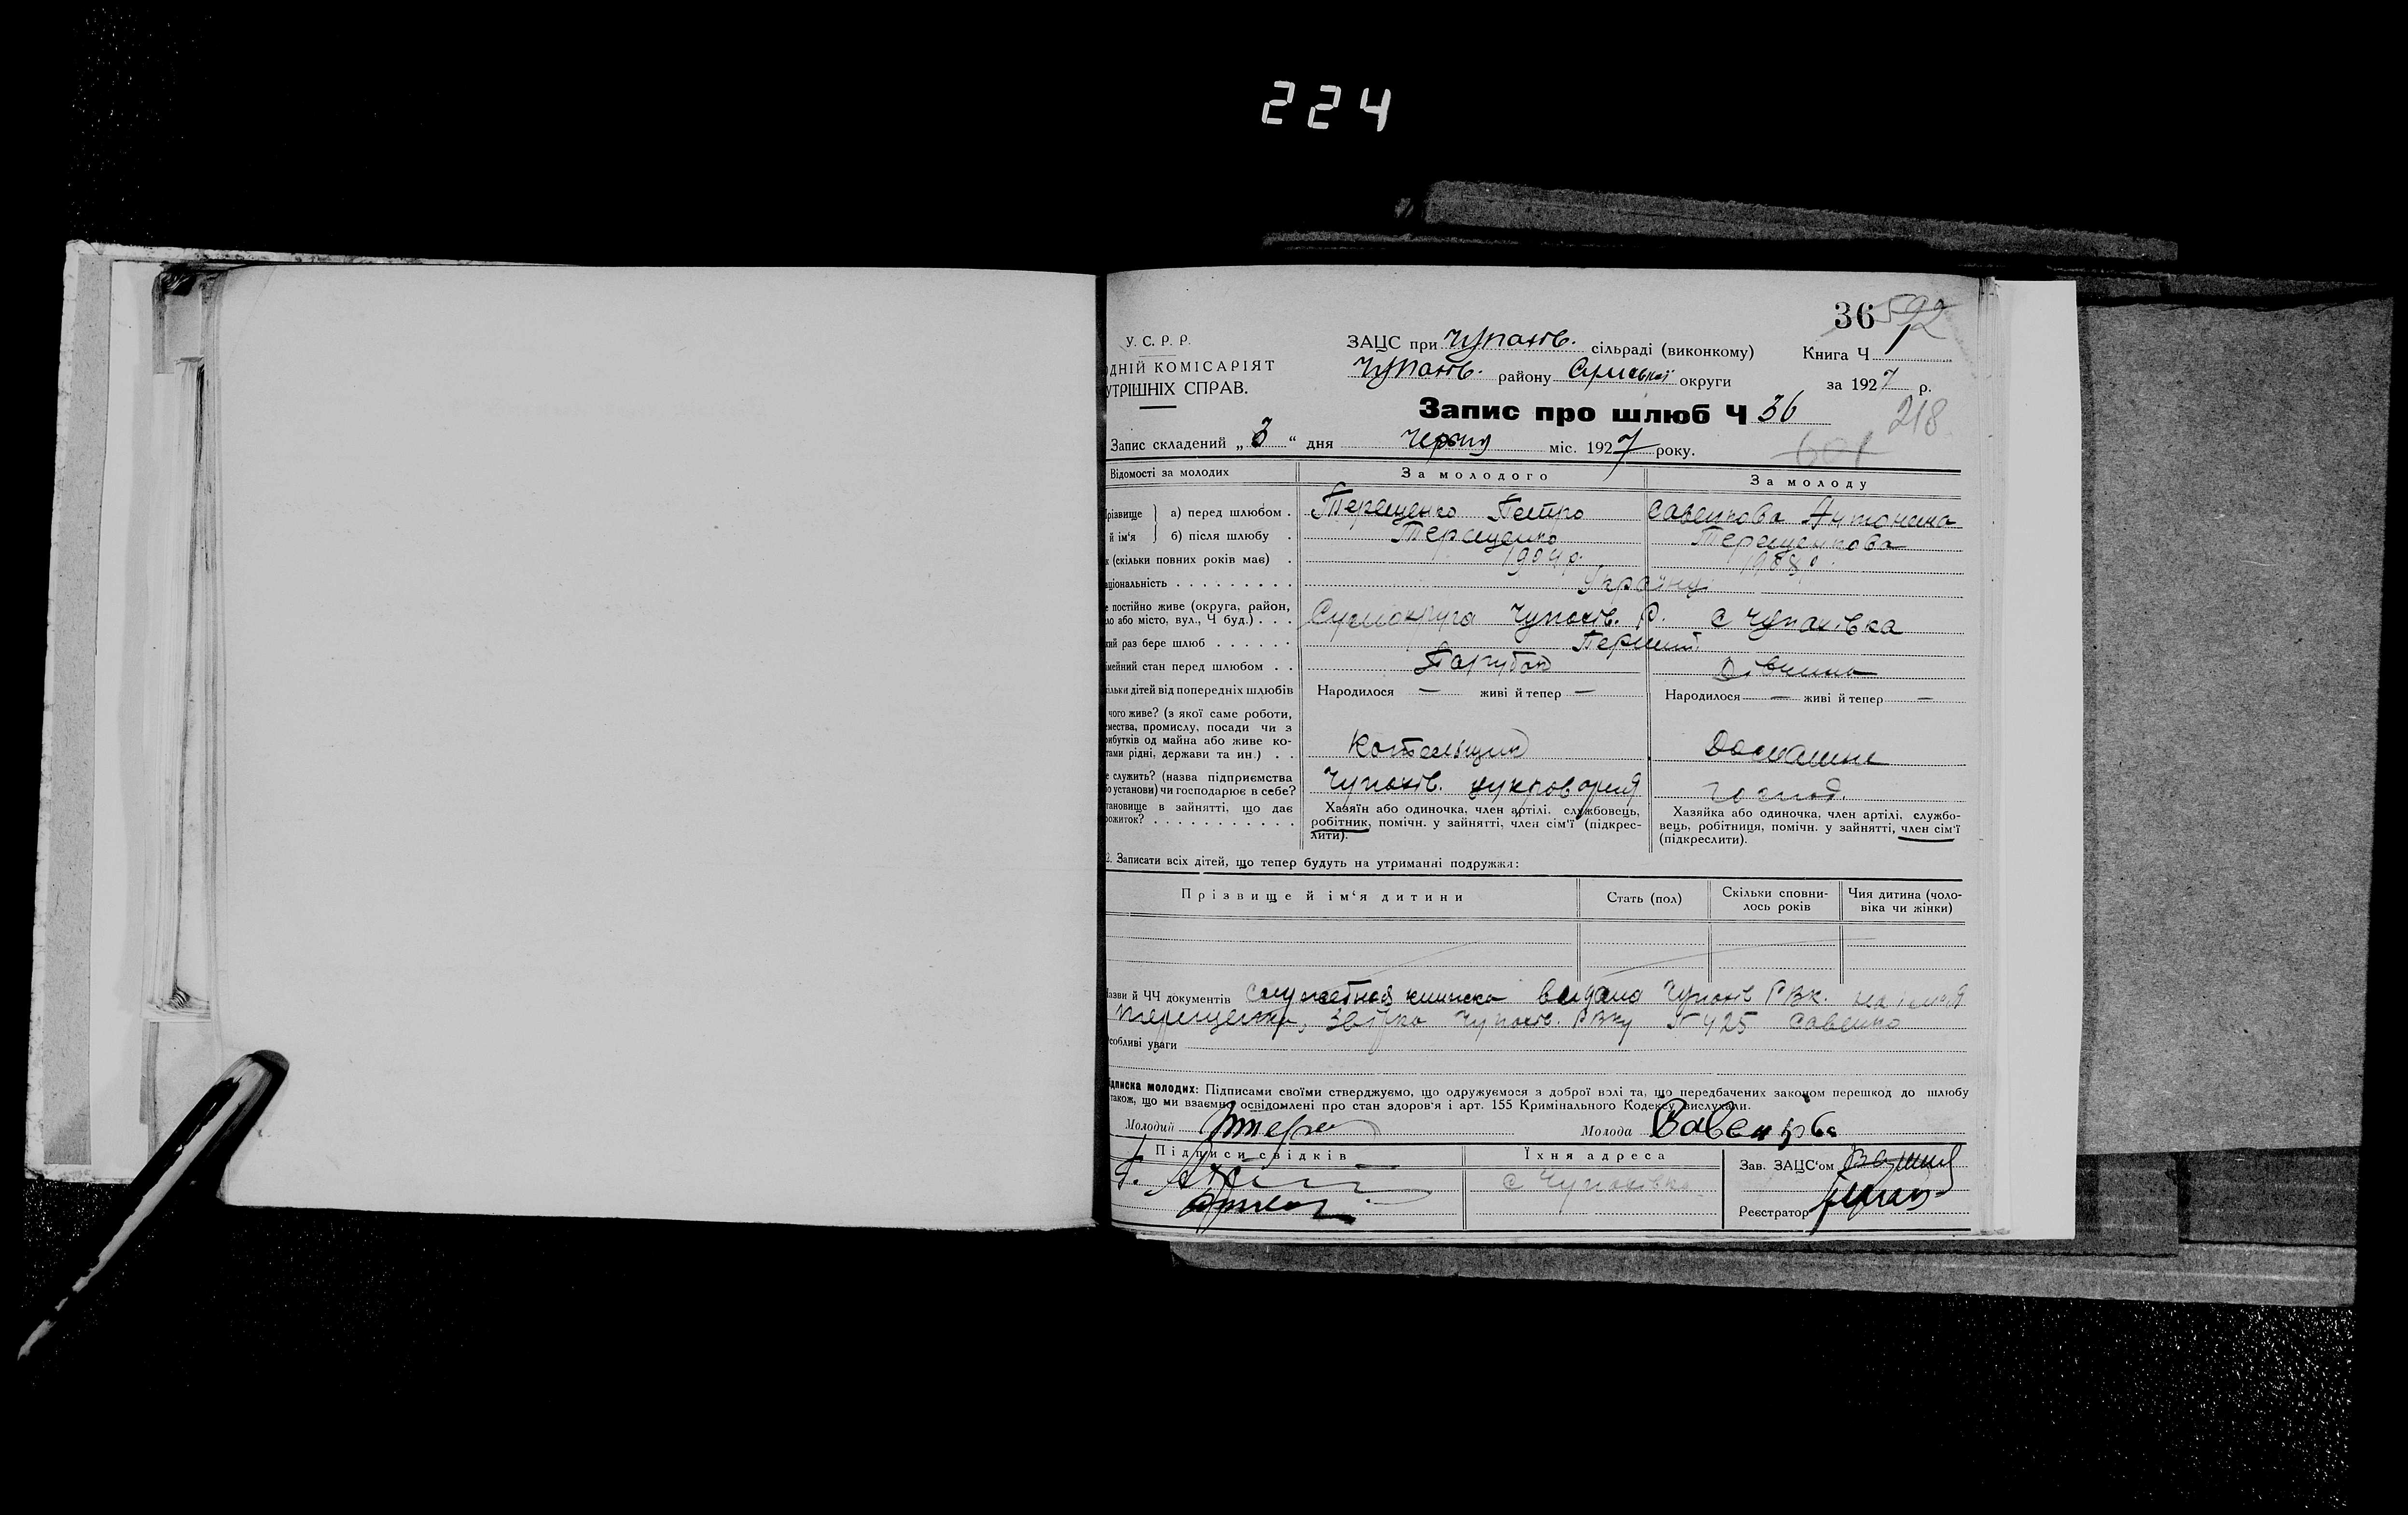 224
36 592
У. С. Р. Р.
ДНІЙ КОМІСАРІЯТ
УТРІШНІХ СПРАВ.
ЗАЦС при Чупахів. сільраді (виконкому) Книга Ч 1
Чупахів. району Сумської округи за 1927 р.
Запис про шлюб Ч 36
218
601
Запис складений „3“ дня червня міс. 1927 року.
Відомості за молодих За молодого За молоду
різвище й ім'я а) перед шлюбом . Терещенко Петро Савенкова Антонина
б) після шлюбу . Терещенко Терещенкова
к (скільки повних років має) . 1904 р. 1908 р.
аціональність . . . . . . . . . Україну.
е постійно живе (округа, район,
ло або місто, вул., Ч буд.) . . . Сумокруга Чупахів. Р. с Чупахівка
ий раз бере шлюб . . . . . . Перший
імейний стан перед шлюбом . . Парубок Дівчина
ільки дітей від попередніх шлюбів Народилося — живі й тепер — Народилося — живі й тепер —
чого живе? (з якої саме роботи,
емества, промислу, посади чи з
рибутків од майна або живе ко-
тами рідні, держави та ин.) . . Котельщик Домашнє
е служить? (назва підприємства
о установи) чи господарює в себе? Чупахів. цукроварня господ.
тановище в зайнятті, що дає
рожиток? . . . . . . . . . . .
Хазяїн або одиночка, член артілі, службовець,
робітник, помічн. у зайнятті, член сім'ї (підкрес-
лити).
Хазяйка або одиночка, член артілі, службо-
вець, робітниця, помічн. у зайнятті, член сім'ї
(підкреслити).
2. Записати всіх дітей, що тепер будуть на утриманні подружжя:
Прізвище й ім'я дитини Стать (пол) Скільки сповни-
лось років Чия дитина (чоло-
віка чи жінки)
азви й ЧЧ документів Служебная книжка видана Чупахів РВК. на
Терещенка, Чупахів. РВКу № 425 Савенко
собливі уваги
ідписка молодих: Підписами своїми стверджуємо, що одружуємося з доброї волі та, що передбачених законом перешкод до шлюбу
також, що ми взаємно освідомлені про стан здоров'я і арт. 155 Кримінального Кодексу вислухали.
Молодий Молода
Підписи свідків Їхня адреса Зав. ЗАЦС'ом
с Чупахівка
Реєстратор